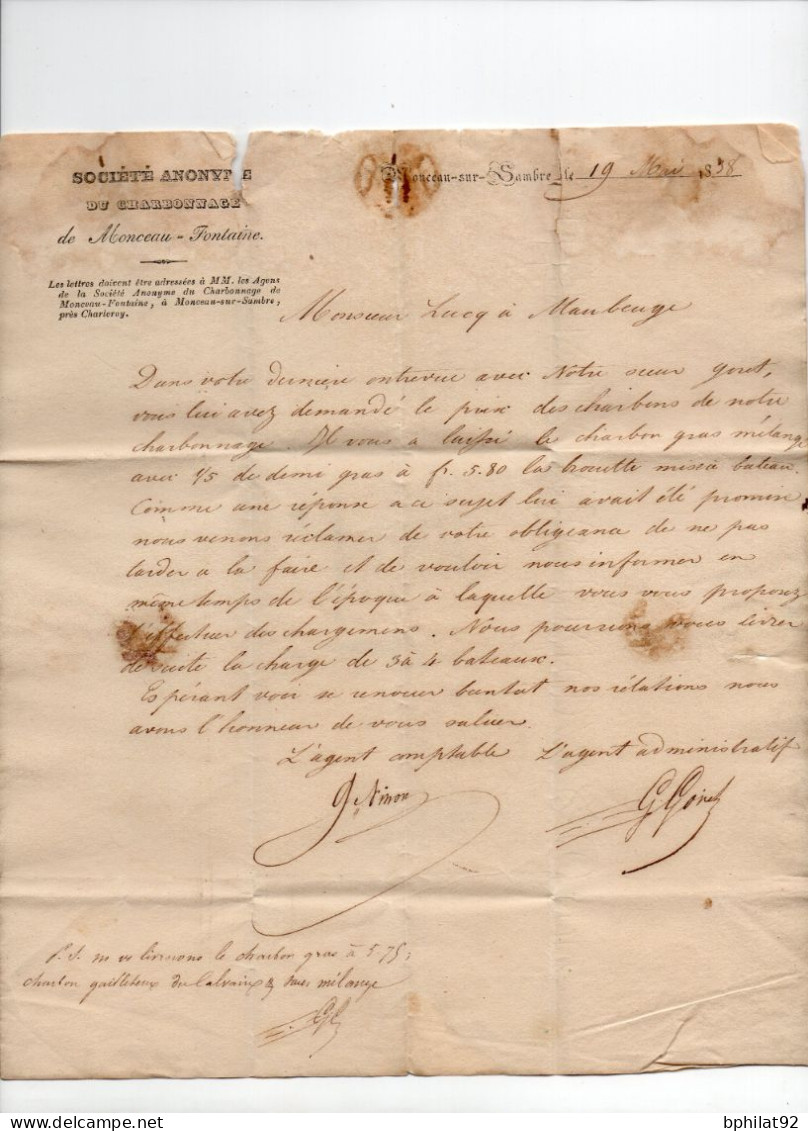 SOCIÉTÉ ANONYME
DU CHARBONNAGE
de Monceau-Fontaine.
Les lettres doivent être adressées à MM. les Agens
de la Société Anonyme du Charbonnage de
Monceau-Fontaine, à Monceau-sur-Sambre,
près Charleroy.
Monceau-sur-Sambre, le 19 Mai 1838
Monsieur Lucq à Maubeuge
Dans votre dernière entrevue avec Notre sieur goret,
vous lui avez demandé le prix des charbons de notre
charbonnage. Il vous a laissé le charbon gras mélange
avec 1/5 de demi gras à fr. 5.80 la houette mise à bateau.
Comme une réponse a ce sujet lui avait été promise
nous venons réclamer de votre obligeance de ne pas
tarder a la faire et de vouloir nous informer en
même temps de l'époque à laquelle vous vous proposez
d'effectuer des chargemens. Nous pourrions vous livrer
de suite la charge de 3 à 4 bateaux.
Espérant voir se renouer bientot nos rélations nous
avons l'honneur de vous saluer.
L'agent comptable L'agent administratif
G Goret
P.S. le charbon gras à 5.75;
charbon gailleteux du Calvaire mélange
GG
bphilat92